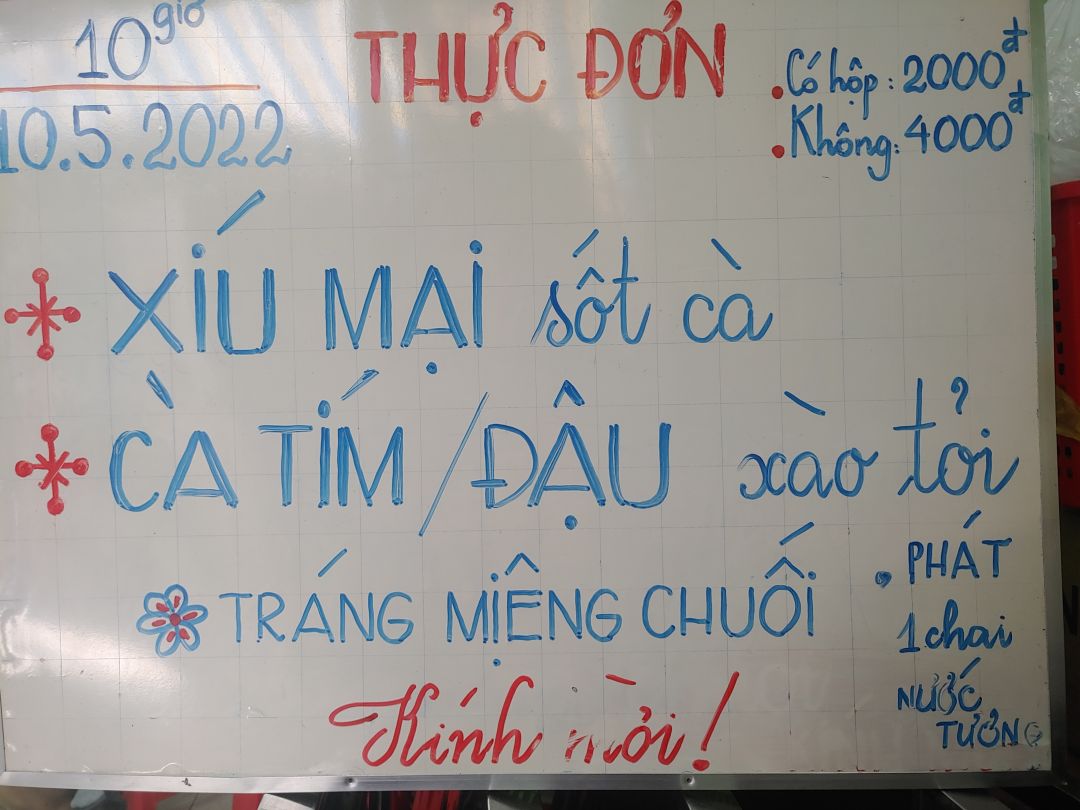 10 giờ
10.5.2022
THỰC ĐƠN
Có hộp: 2000đ
Không: 4000đ
XÍU MẠI sốt cà
CÀ TÍM / ĐẬU xào tỏi
TRÁNG MIỆNG CHUỐI
PHÁT
1 chai
NƯỚC
TƯƠNG
Kính mời!